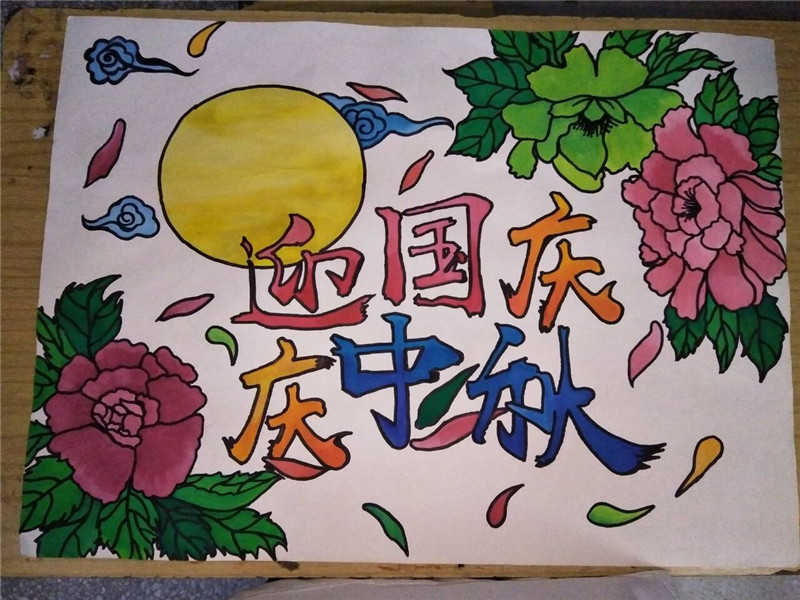 迎国庆
庆中秋